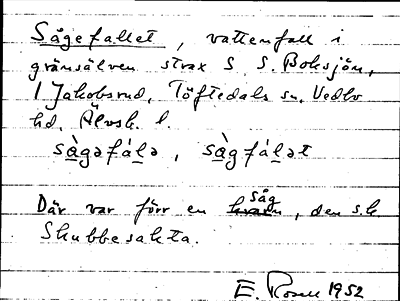 Sågefallet, vattenfall i
gränsälven strax S S. Boksjön,
1 Jakobsrud, Töftedals sn, Vedbo
hd, Älvsb. l.
sàgəfálə, sàgfálət
Där var förr en såg, den s.k.
Skubbesakta.
E. Rosen 1952